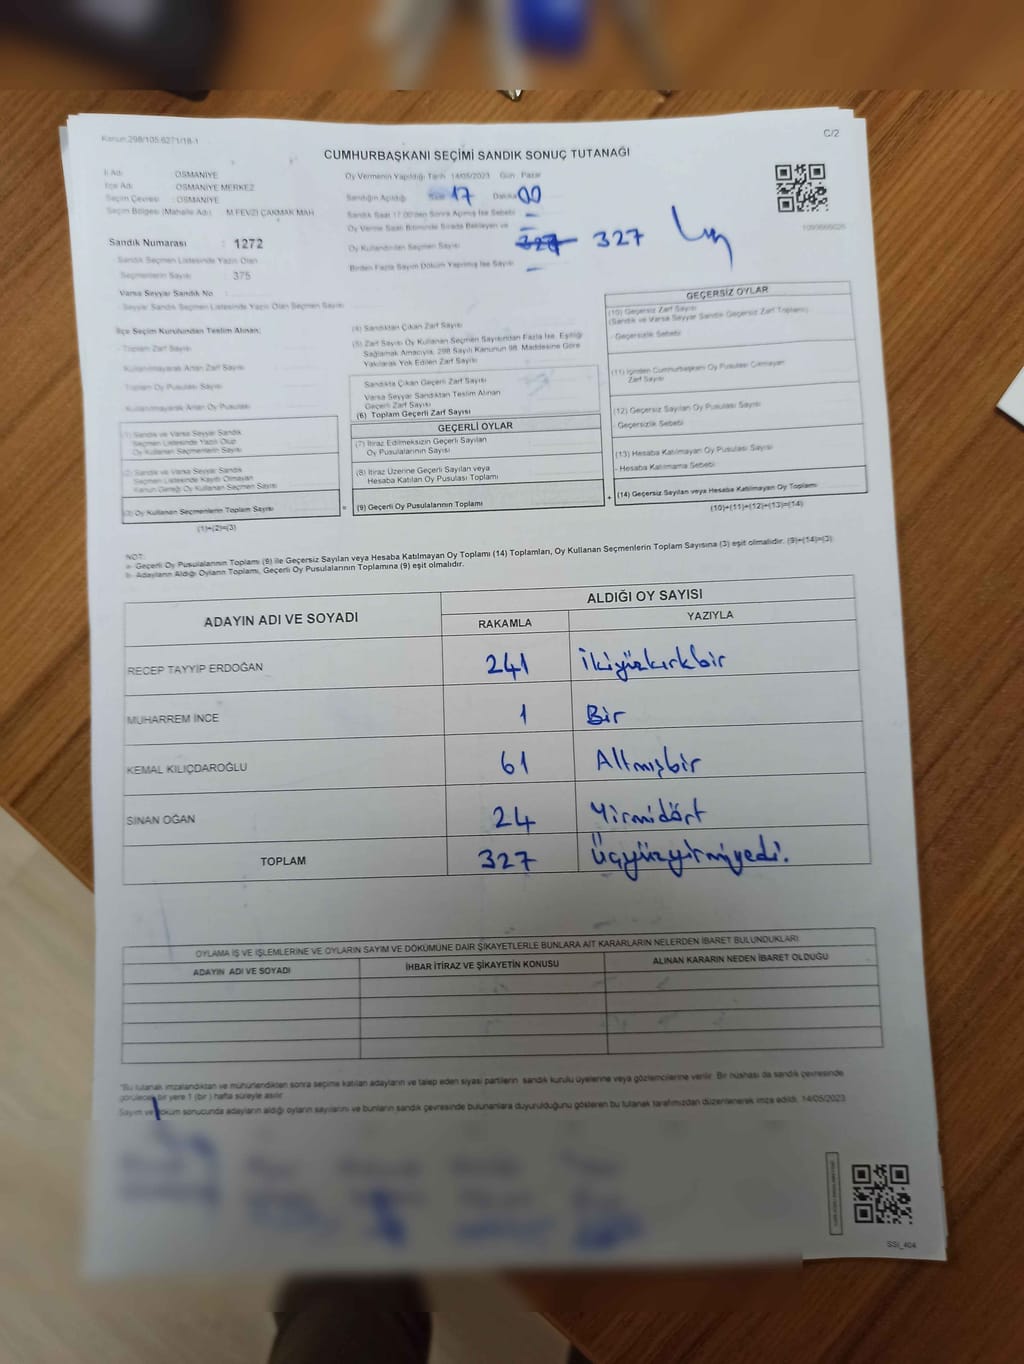 Kanun:298/105 6271/18-1
C/2
CUMHURBAŞKANI SEÇİMİ SANDIK SONUÇ TUTANAĞI
İl Adı : OSMANİYE
İlçe Adı : OSMANİYE MERKEZ
Seçim Çevresi : OSMANİYE
Seçim Bölgesi (Mahalle Adı) : M.FEVZİ ÇAKMAK MAH
Sandık Numarası : 1272
Sandık Seçmen Listesinde Yazılı Olan
Seçmenlerin Sayısı 375
Varsa Seyyar Sandık No :
Seyyar Sandık Seçmen Listesinde Yazılı Olan Seçmen Sayısı
Oy Vermenin Yapıldığı Tarih 14/05/2023 Gün : Pazar
Sandığın Açıldığı Saat 17 Dakika 00
Sandık Saat 17.00'den Sonra Açılmış İse Sebebi –
Oy Verme Saati Bitiminde Sırada Bekleyen ve –
Oy Kullandırılan Seçmen Sayısı 327 327
Birden Fazla Sayım Döküm Yapılmış İse Sayısı –
İlçe Seçim Kurulundan Teslim Alınan;
- Toplam Zarf Sayısı
Kullanılmayarak Artan Zarf Sayısı
Toplam Oy Pusulası Sayısı
Kullanılmayarak Artan Oy Pusulası
(1) Sandık ve Varsa Seyyar Sandık
Seçmen Listesinde Yazılı Olup
Oy Kullanan Seçmenlerin Sayısı
(2) Sandık ve Varsa Seyyar Sandık
Seçmen Listesinde Kayıtlı Olmayan
Kanun Gereği Oy Kullanan Seçmen Sayısı
(3) Oy Kullanan Seçmenlerin Toplam Sayısı
(1)+(2)=(3)
(4) Sandıktan Çıkan Zarf Sayısı
(5) Zarf Sayısı Oy Kullanan Seçmen Sayısından Fazla İse, Eşitliği
Sağlamak Amacıyla, 298 Sayılı Kanunun 98. Maddesine Göre
Yakılarak Yok Edilen Zarf Sayısı
Sandıkta Çıkan Geçerli Zarf Sayısı
Varsa Seyyar Sandıktan Teslim Alınan
Geçerli Zarf Sayısı
(6) Toplam Geçerli Zarf Sayısı
GEÇERLİ OYLAR
(7) İtiraz Edilmeksizin Geçerli Sayılan
Oy Pusulalarının Sayısı
(8) İtiraz Üzerine Geçerli Sayılan veya
Hesaba Katılan Oy Pusulası Toplamı
= (9) Geçerli Oy Pusulalarının Toplamı +
GEÇERSİZ OYLAR
(10) Geçersiz Zarf Sayısı
(Sandık ve Varsa Seyyar Sandık Geçersiz Zarf Toplamı)
- Geçersizlik Sebebi
(11) İçinden Cumhurbaşkanı Oy Pusulası Çıkmayan
Zarf Sayısı
(12) Geçersiz Sayılan Oy Pusulası Sayısı
- Geçersizlik Sebebi
(13) Hesaba Katılmayan Oy Pusulası Sayısı
- Hesaba Katılmama Sebebi
(14) Geçersiz Sayılan veya Hesaba Katılmayan Oy Toplamı
(10)+(11)+(12)+(13)=(14)
NOT:
a- Geçerli Oy Pusulalarının Toplamı (9) ile Geçersiz Sayılan veya Hesaba Katılmayan Oy Toplamı (14) Toplamları, Oy Kullanan Seçmenlerin Toplam Sayısına (3) eşit olmalıdır. (9)+(14)=(3)
b- Adayların Aldığı Oyların Toplamı, Geçerli Oy Pusulalarının Toplamına (9) eşit olmalıdır.
ADAYIN ADI VE SOYADI
ALDIĞI OY SAYISI
RAKAMLA YAZIYLA
RECEP TAYYİP ERDOĞAN 241 İkiyüzkırkbir
MUHARREM İNCE 1 Bir
KEMAL KILIÇDAROĞLU 61 Altmışbir
SİNAN OĞAN 24 Yirmidört
TOPLAM 327 Üçyüzyirmiyedi.
OYLAMA İŞ VE İŞLEMLERİNE VE OYLARIN SAYIM VE DÖKÜMÜNE DAİR ŞİKAYETLERLE BUNLARA AİT KARARLARIN NELERDEN İBARET BULUNDUKLARI
ADAYIN ADI VE SOYADI İHBAR İTİRAZ VE ŞİKAYETİN KONUSU ALINAN KARARIN NEDEN İBARET OLDUĞU
"Bu tutanak imzalandıktan ve mühürlendikten sonra seçime katılan adayların ve talep eden siyasi partilerin sandık kurulu üyelerine veya gözlemcilerine verilir. Bir nüshası da sandık çevresinde
görülecek bir yere 1 (bir) hafta süreyle asılır.
Sayım ve döküm sonucunda adayların aldığı oyların sayılarını ve bunların sandık çevresinde bulunanlara duyurulduğunu gösteren bu tutanak tarafımızdan düzenlenerek imza edildi. 14/05/2023
SSİ_404